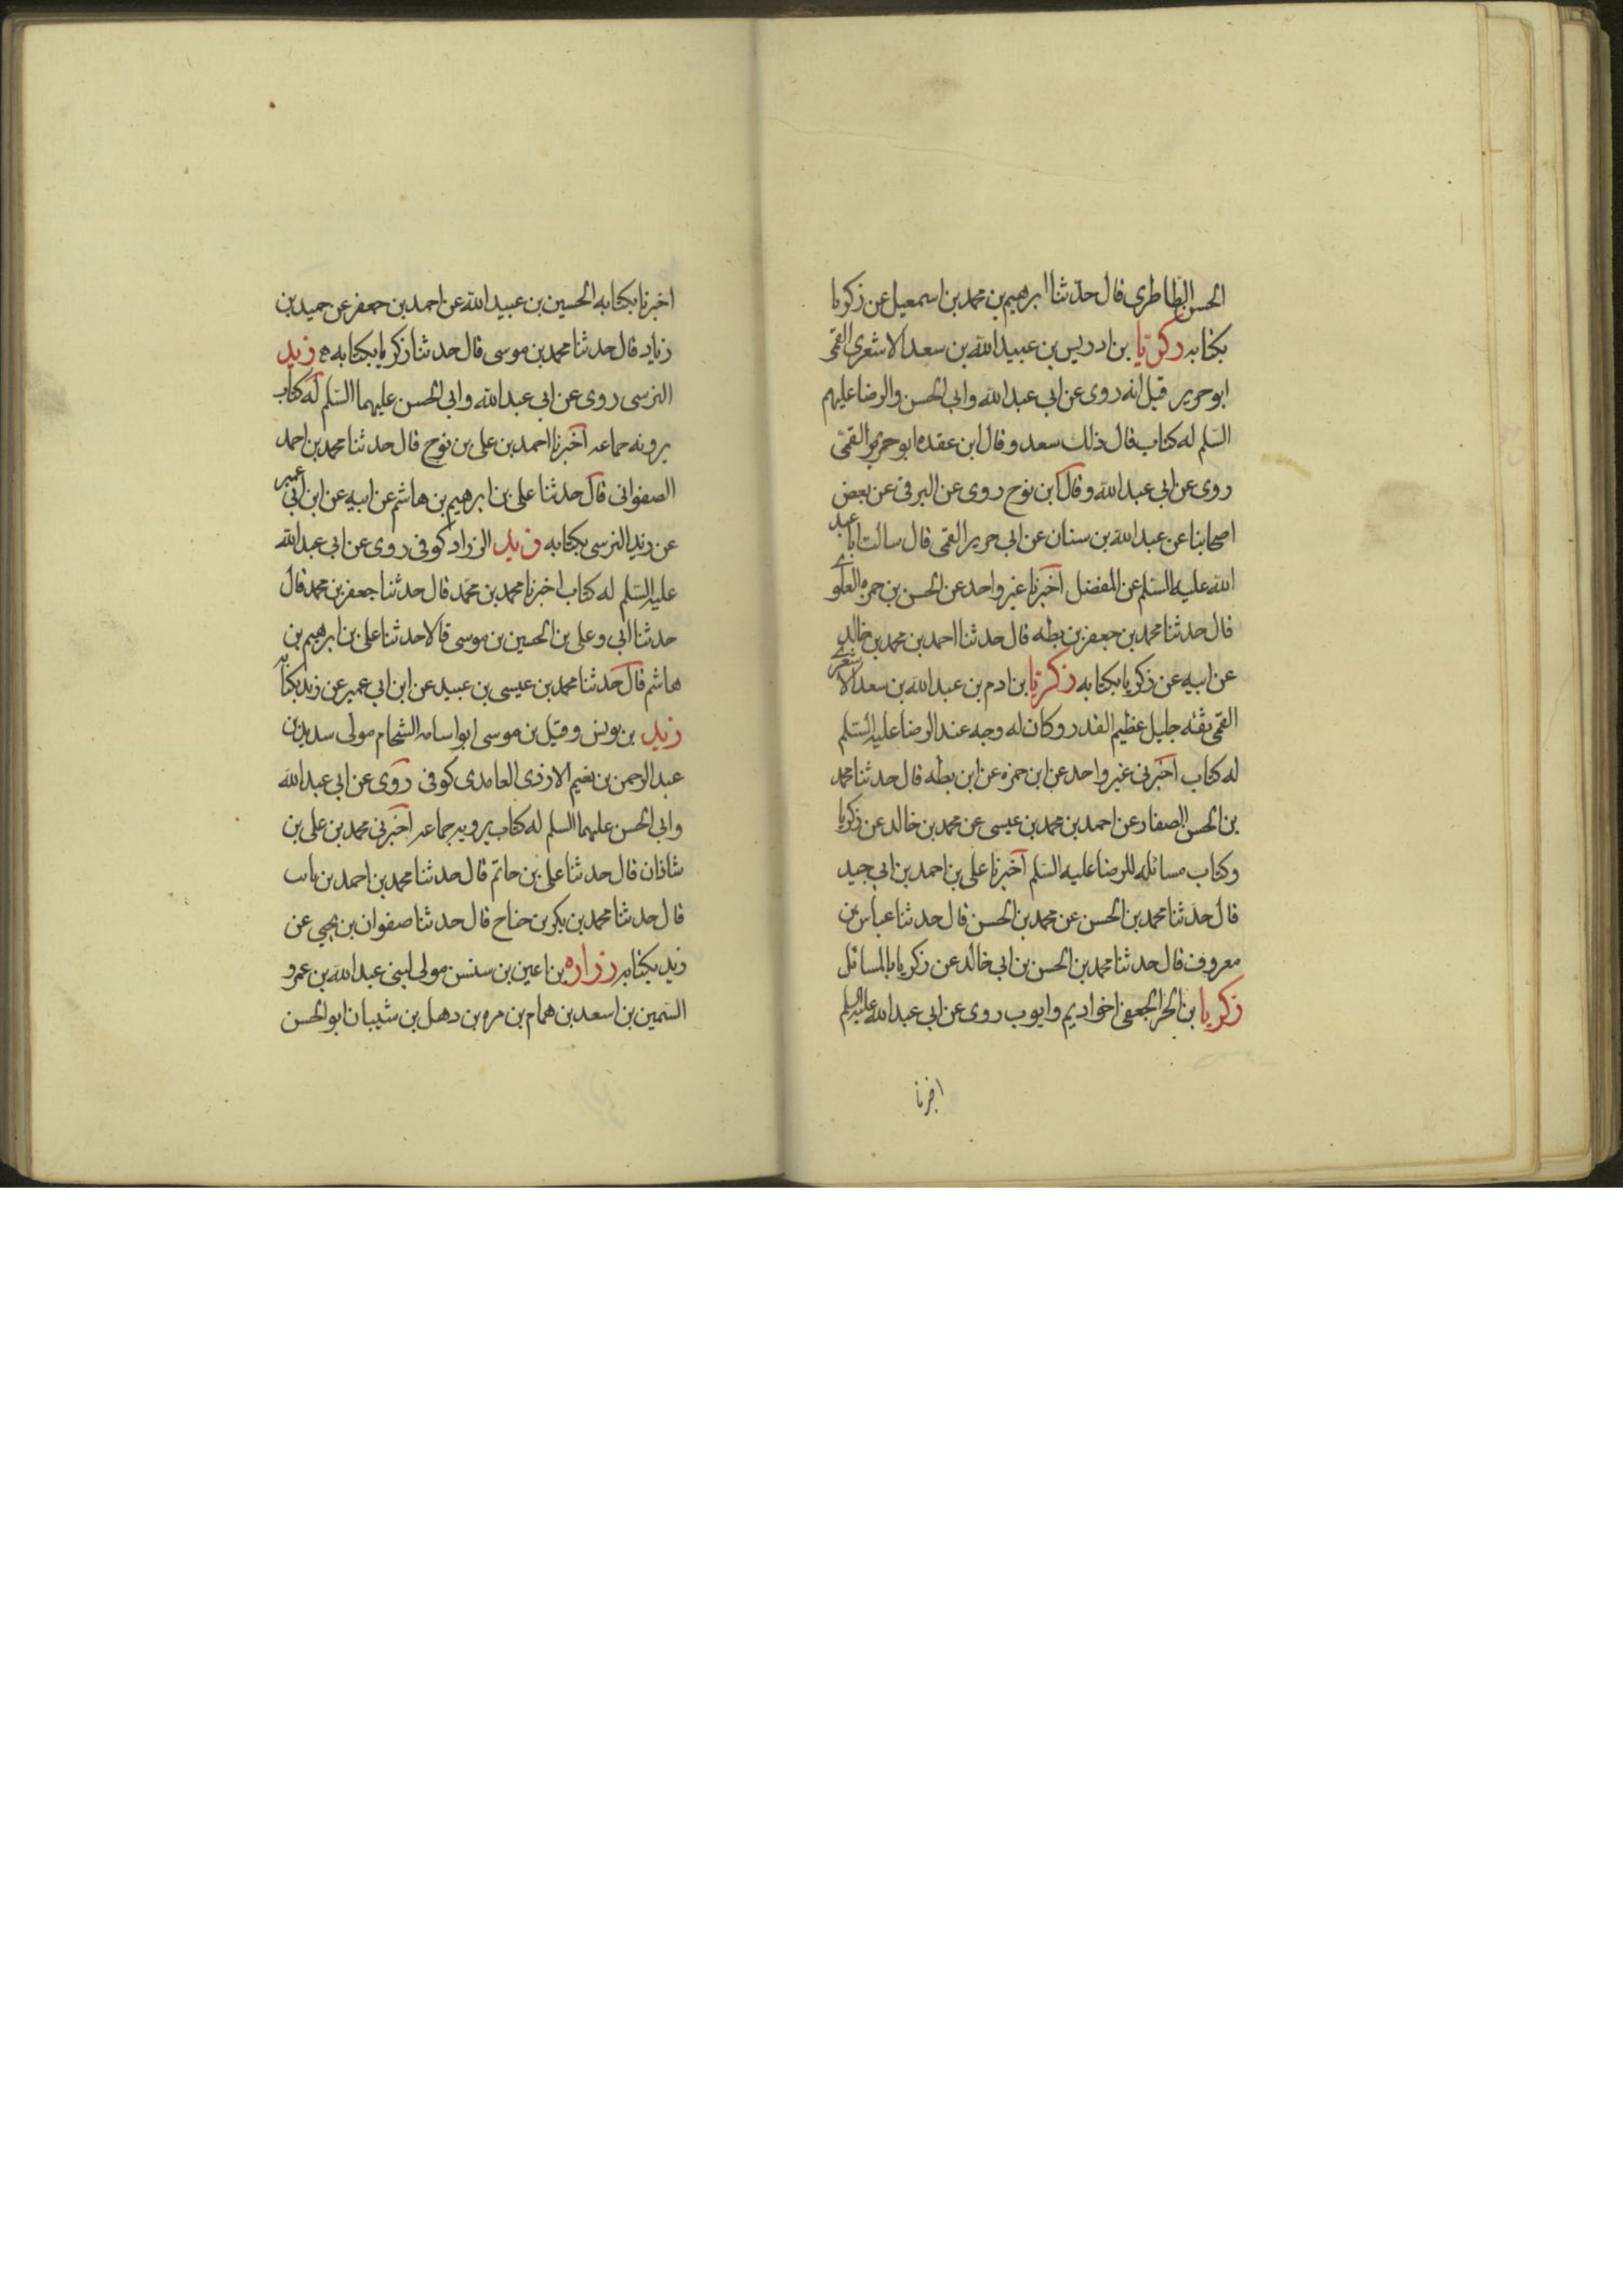 الحسن الطاطرى قال حدثنا ابرهيم بن محمد بن اسمعيل عن زكريا
بكتابه زكريا بن ادريس بن عبيد الله بن سعد الاشعرى القمى
ابو حرير قيل انه روى عن ابى عبد الله وابى الحسن والرضا عليهم
السلم له كتاب قال ذلك سعد وقال ابن عقده ابو حرير القمى
روى عن ابى عبد الله وقال ابن نوح روى عن البرقى عن بعض
اصحابنا عن عبد الله بن سنان عن ابى حرير القمى قال سالت ابا عبد
الله عليه السلم عن المفضل اخبرنا غير واحد عن الحسن بن حمزه العلوى
قال حدثنا محمد بن جعفر بن بطه قال حدثنا احمد بن محمد بن خالد
عن ابيه عن زكريا بكتابه زكريا بن ادم بن عبد الله بن سعد الاشعرى
القمى ثقه جليل عظيم القدر وكان له وجه عند الرضا عليه السلم
له كتاب اخبرنى غير واحد عن ابن حمزه عن ابن بطه قال حدثنا محمد
بن الحسن الصفار عن احمد بن محمد بن عيسى عن محمد بن خالد عن زكريا
وكتاب مسائله للرضا عليه السلم اخبرنا على بن احمد بن ابى جيد
قال حدثنا محمد بن الحسن عن محمد بن الحسن قال حدثنا عباس بن
معروف قال حدثنا محمد بن الحسن بن ابى خالد عن زكريا بالمسائل
زكريا بن الحر الجعفى اخو اديم وايوب روى عن ابى عبد الله عليه السلم
اخبرنا
اخبرنا بكتابه الحسين بن عبيد الله عن احمد بن جعفر عن حميد بن
زياد قال حدثنا محمد بن موسى قال حدثنا زكريا بكتابه زيد
النرسى روى عن ابى عبد الله وابى الحسن عليهما السلم له كتاب
يرونه جماعه اخبرنا احمد بن على بن نوح قال حدثنا محمد بن احمد
الصفوانى قال حدثنا على بن ابرهيم بن هاشم عن ابيه عن ابن ابى عمير
عن زيد النرسى بكتابه زيد الزراد كوفى روى عن ابى عبد الله
عليه السلم له كتاب اخبرنا محمد بن محمد قال حدثنا جعفر بن محمد قال
حدثنا ابى وعلى بن الحسين بن موسى قالا حدثنا على بن ابرهيم بن
هاشم قال حدثنا محمد بن عيسى بن عبيد عن ابن ابى عمير عن زيد بكتابه
زيد بن يونس وقيل بن موسى ابو اسامه الشحام مولى سديد بن
عبد الرحمن بن نعيم الازدى الغامدى كوفى روى عن ابى عبد الله
وابى الحسن عليهما السلم له كتاب يرويه جماعه اخبرنى محمد بن على بن
شاذان قال حدثنا على بن حاتم قال حدثنا محمد بن احمد بن ثابت
قال حدثنا محمد بن بكر بن جناح قال حدثنا صفوان بن يحيى عن
زيد بكتابه زراره بن اعين بن سنسن مولى لبنى عبد الله بن عمرو
السمين بن اسعد بن همام بن مره بن دهل بن شيبان ابو الحسن